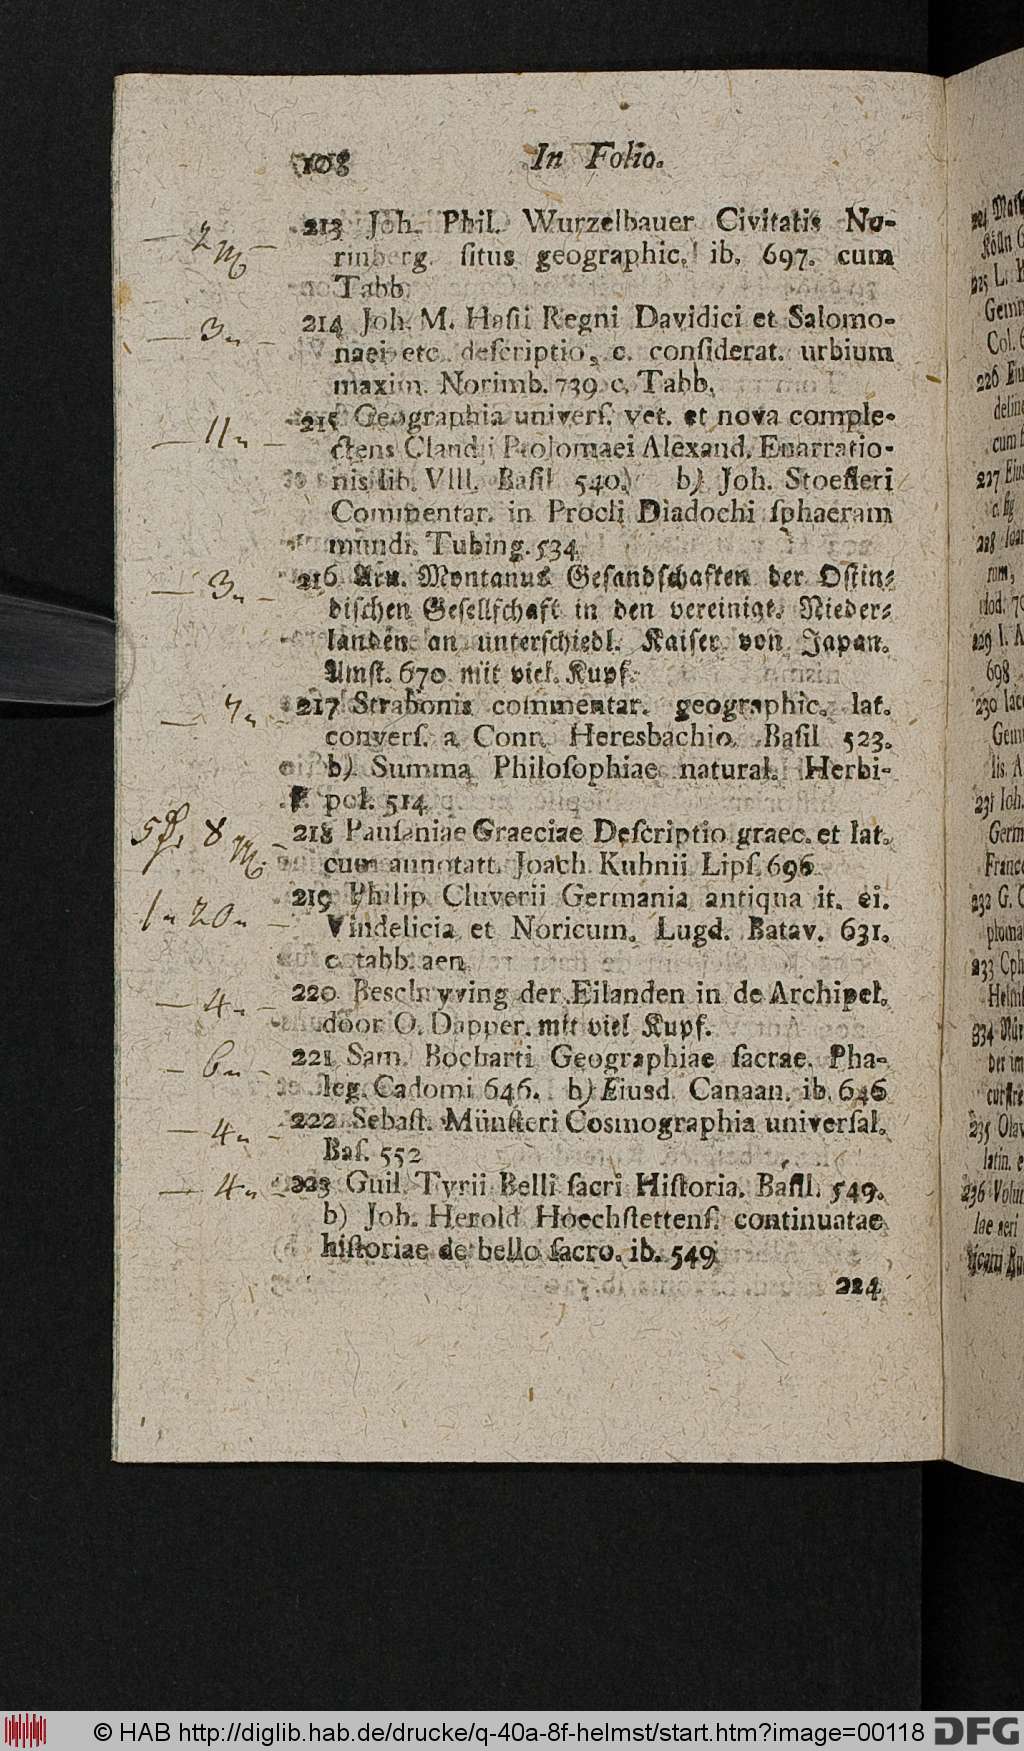 108 In Folio.
— 2 m — 213 Joh. Phil. Wurzelbauer Civitatis No-
rinberg. situs geographic. ib. 697. cum
Tabb.
— 3 „ — 214 Joh. M. Hasii Regni Davidici et Salomo-
naei etc. descriptio, c. considerat. urbium
maxim. Norimb. 739. c. Tabb.
— 11 „ — 215 Geographia univers. vet. et nova comple-
ctens Claudii Ptolomaei Alexand. Enarratio-
nis lib. VIII. Basil 540. b) Joh. Stoefleri
Commentar. in Procli Diadochi sphaeram
mundi. Tubing. 534
— 3 „ — 216 Arn. Montanus Gesandschaften der Ostin-
dischen Gesellschaft in den vereinigt. Nieder-
landen an unterschiedl. Kaiser von Japan.
Amst. 670 mit viel. Kupf.
— 7 „ — 217 Strabonis commentar. geographic. lat.
convers. a Conr. Heresbachio. Basil 523.
b) Summa Philosophiae natural. Herbi-
pol. 514
5 8 m — 218 Pausaniae Graeciae Descriptio graec. et lat.
cum annotatt. Joach. Kuhnii Lips. 696
1 „ 20 „ — 219 Philip Cluverii Germania antiqua it. ei.
Vindelicia et Noricum. Lugd. Batav. 631.
c. tabb. aen.
— 4 „ — 220 Beschryving der Eilanden in de Archipel.
door O. Dapper. mit viel Kupf.
— 6 „ — 221 Sam. Bocharti Geographiae sacrae. Pha-
leg. Cadomi 646. b) Eiusd. Canaan. ib. 646
— 4 „ — 222 Sebast. Münsteri Cosmographia universal.
Bas. 552
— 4 „ — 223 Guil. Tyrii Belli sacri Historia. Basil. 549.
b) Joh. Herold Hoechstettens. continuatae
historiae de bello sacro. ib. 549
224
© HAB http://diglib.hab.de/drucke/q-40a-8f-helmst/start.htm?image=00118 DFG